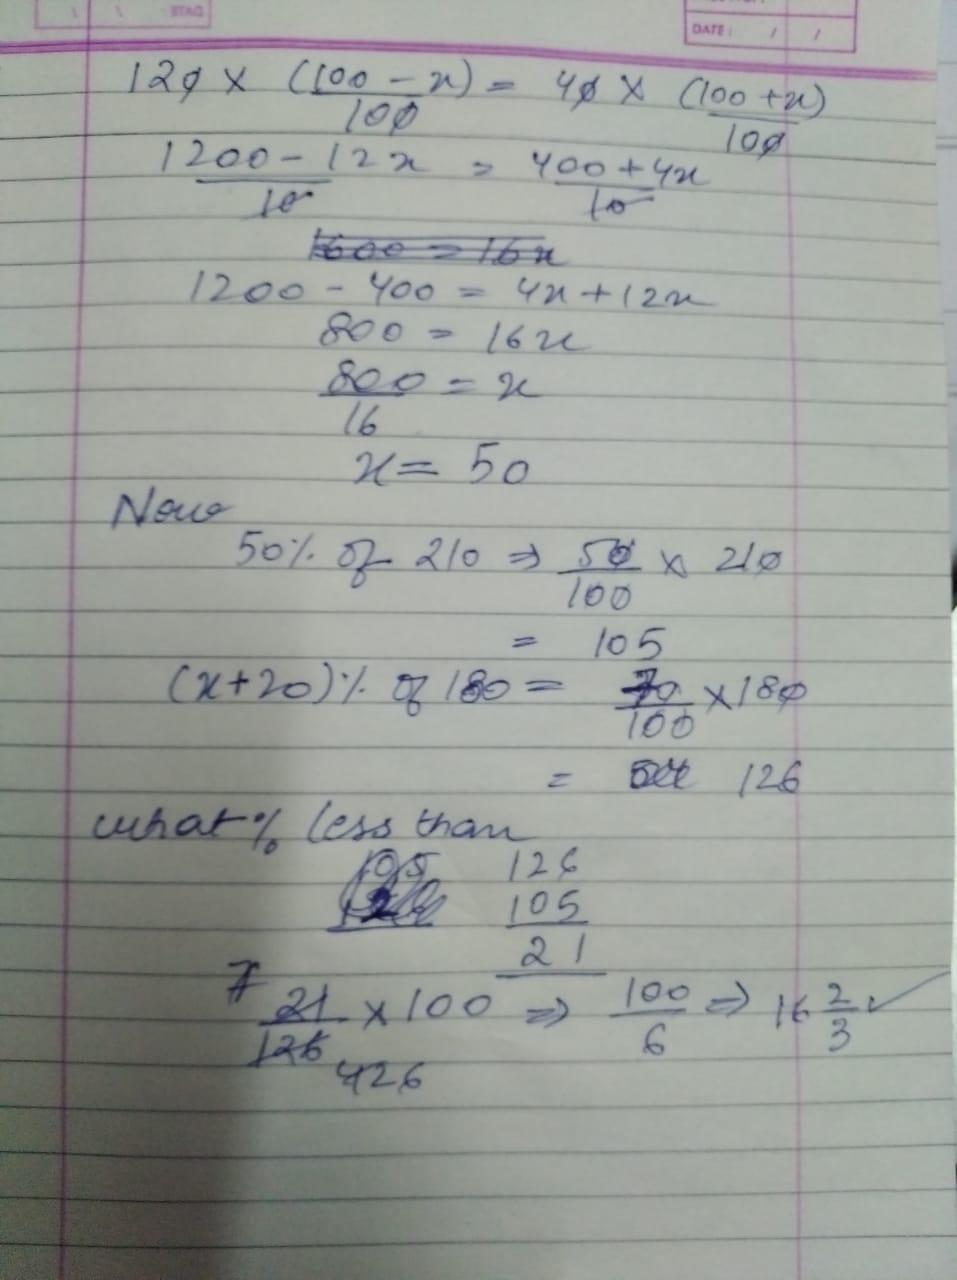 DATE : / /
120 × (100 - x)/100 = 40 × (100 + x)/100
1200 - 12x/10 = 400 + 4x/10
1600 = 16x
1200 - 400 = 4x + 12x
800 = 16x
800/16 = x
x = 50
Now
50% of 210 ⇒ 50/100 × 210
= 105
(x+20)% of 180 = 70/100 × 180
= 126
what% less than
105 126
105
21
7
21/126 × 100 ⇒ 100/6 ⇒ 16 2/3 ✓
426